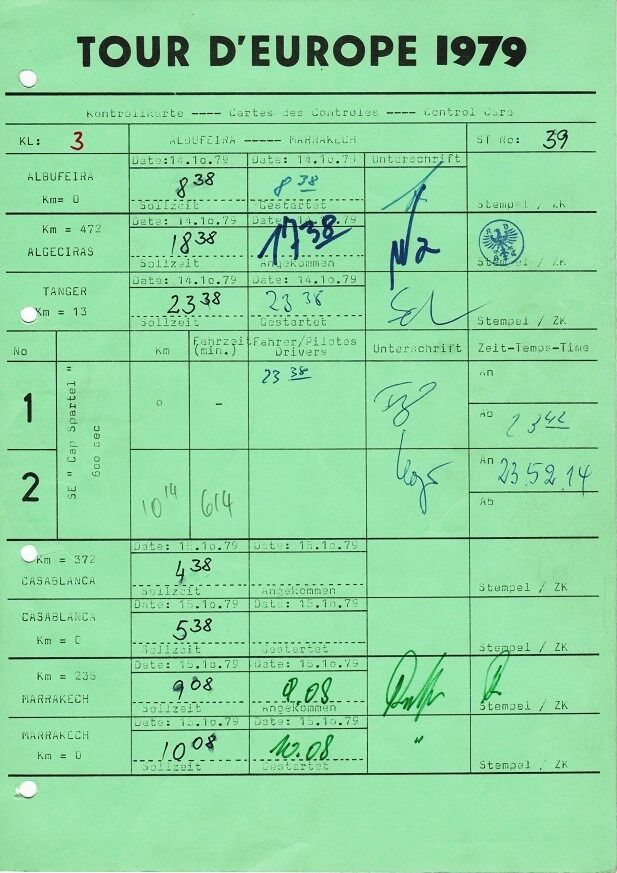 TOUR D'EUROPE 1979
Kontrollkarte ---- Cartes des Controles ---- Control Card
KL: 3 ALBUFEIRA ----- MARRAKECH ST No: 39
Date:14.10.79 Date: 14.10.79 Unterschrift
ALBUFEIRA 8 38 8 38
Km= 0 Sollzeit Gestartet Stempel / ZK
Date: 14.10.79 Date: 14.10.79
Km = 472 18 38 17 38
ALGECIRAS Sollzeit Angekommen Stempel / ZK
Date: 14.10.79 Date: 14.10.79
TANGER 23 38 23 38
Km = 13 Sollzeit Gestartet Stempel / ZK
No Km Fahrzeit (min.) Fahrer/Pilotes Drivers Unterschrift Zeit-Temps-Time
SE " Cap Spartel "
600 sec
23 38 An
1 0 – Ab 23 42
An 23.52.14
2 10 14 614 Ab
Date: 15.10.79 Date: 15.10.79
Km = 372 4 38
CASABLANCA Sollzeit Angekommen Stempel / ZK
Date: 15.10.79 Date: 15.10.79
CASABLANCA 5 38
Km = 0 Sollzeit Gestartet Stempel / ZK
Date: 15.10.79 Date: 15.10.79
Km = 235 9 08 9.08
MARRAKECH Sollzeit Angekommen Stempel / ZK
Date: 15.10.79 Date: 15.10.79
MARRAKECH 10 08 10.08 "
Km = 0 Sollzeit Gestartet Stempel / ZK